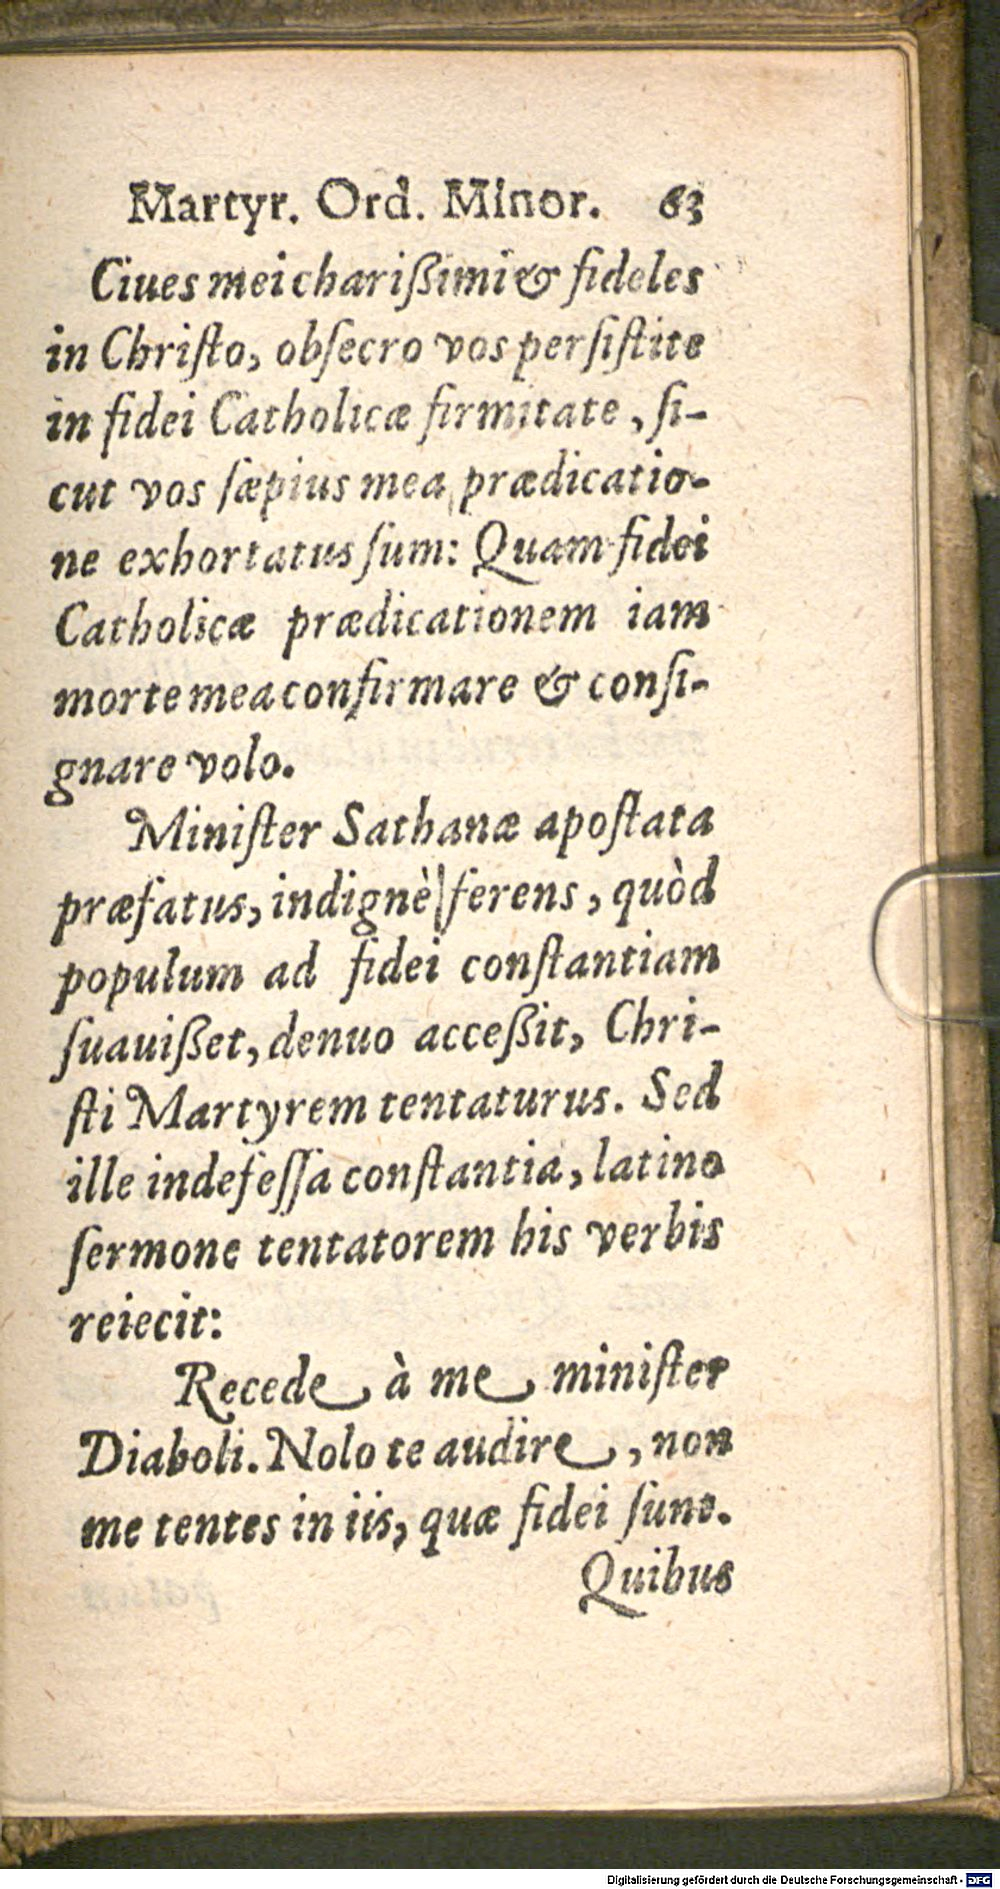 Martyr. Ord. Minor. 63
Ciues mei charißimi & fideles
in Chriſto, obſecro vos perſiſtite
in fidei Catholicæ firmitate, ſi-
cut vos ſæpius mea prædicatio-
ne exhortatus ſum: Quam fidei
Catholicæ prædicationem iam
morte mea confirmare & conſi-
gnare volo.
Miniſter Sathanæ apoſtata
præfatus, indignè ferens, quòd
populum ad fidei conſtantiam
ſuauißet, denuo acceßit, Chri-
ſti Martyrem tentaturus. Sed
ille indefeſſa conſtantia, latino
ſermone tentatorem his verbis
reiecit:
Recede à me miniſter
Diaboli. Nolo te audire, non
me tentes in iis, quæ fidei ſunt.
Quibus
Digitalisierung gefördert durch die Deutsche Forschungsgemeinschaft - DFG